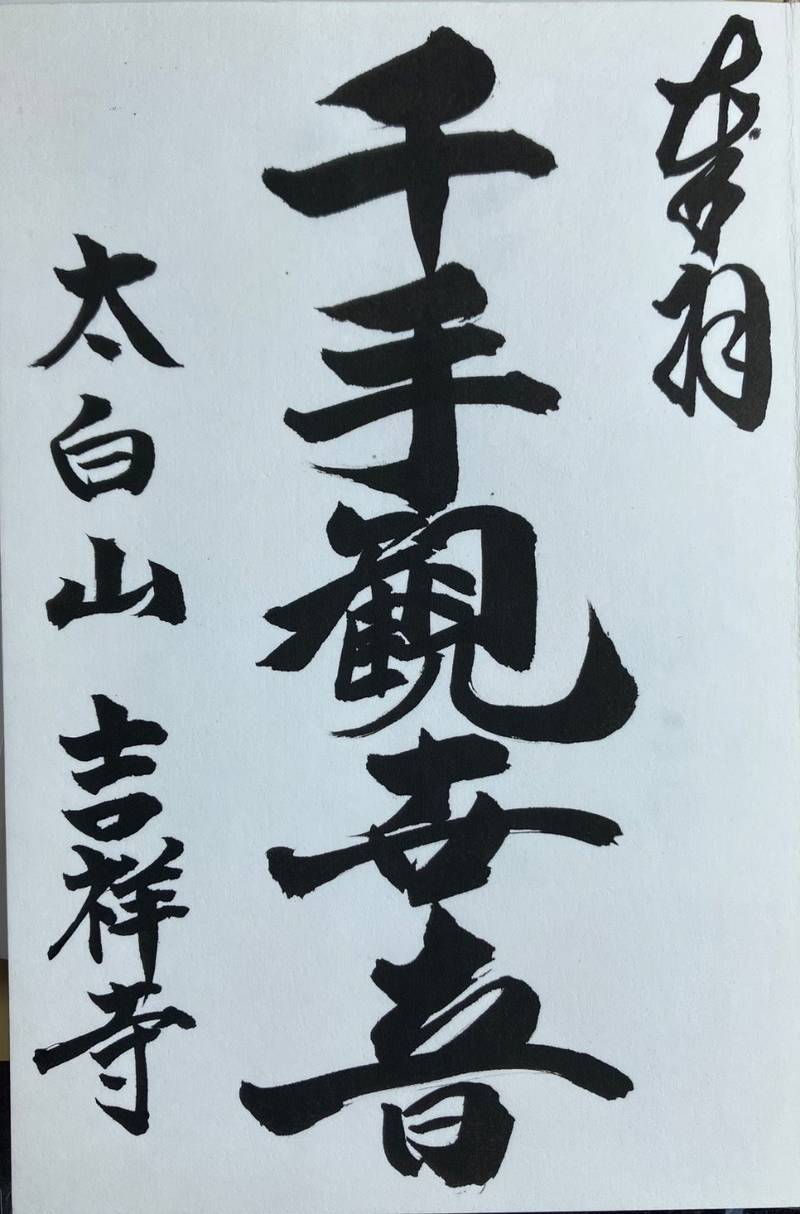 奉拝
千手観世音
太白山 吉祥寺